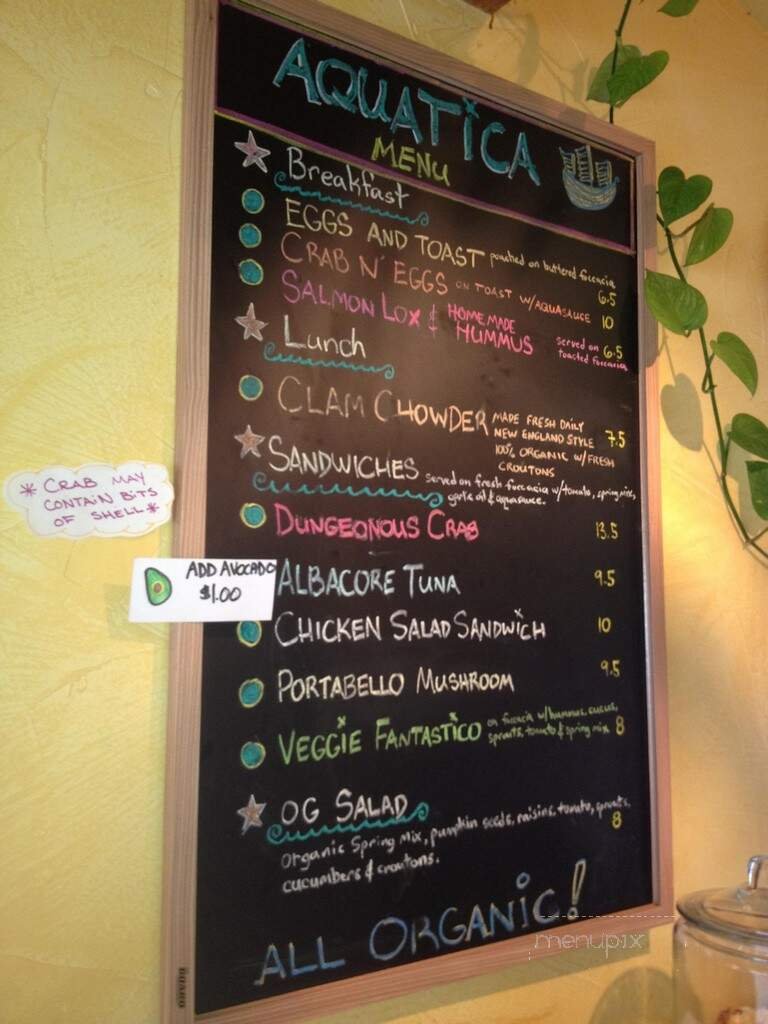 AQUATICA
MENU
Breakfast
EGGS AND TOAST poached on buttered foccacia 6.5
CRAB N' EGGS ON TOAST W/AQUASAUCE 10
SALMON LOX & HOMEMADE HUMMUS served on toasted foccacia 6.5
Lunch
CLAM CHOWDER MADE FRESH DAILY
NEW ENGLAND STYLE 7.5
100% ORGANIC W/FRESH
CROUTONS
SANDWICHES served on fresh foccacia w/tomato, spring mix,
garlic oil & aquasauce.
DUNGEONOUS CRAB 13.5
ALBACORE TUNA 9.5
CHICKEN SALAD SANDWICH 10
PORTABELLO MUSHROOM 9.5
VEGGIE FANTASTICO on foccacia w/hummus, cucus,
sprouts, tomato & spring mix 8
OG SALAD
Organic Spring Mix, pumpkin seeds, raisins, tomato, sprouts, 8
cucumbers & croutons.
ALL ORGANIC!
* CRAB MAY
CONTAIN BITS
OF SHELL *
ADD AVOCADO
$1.00
menupix